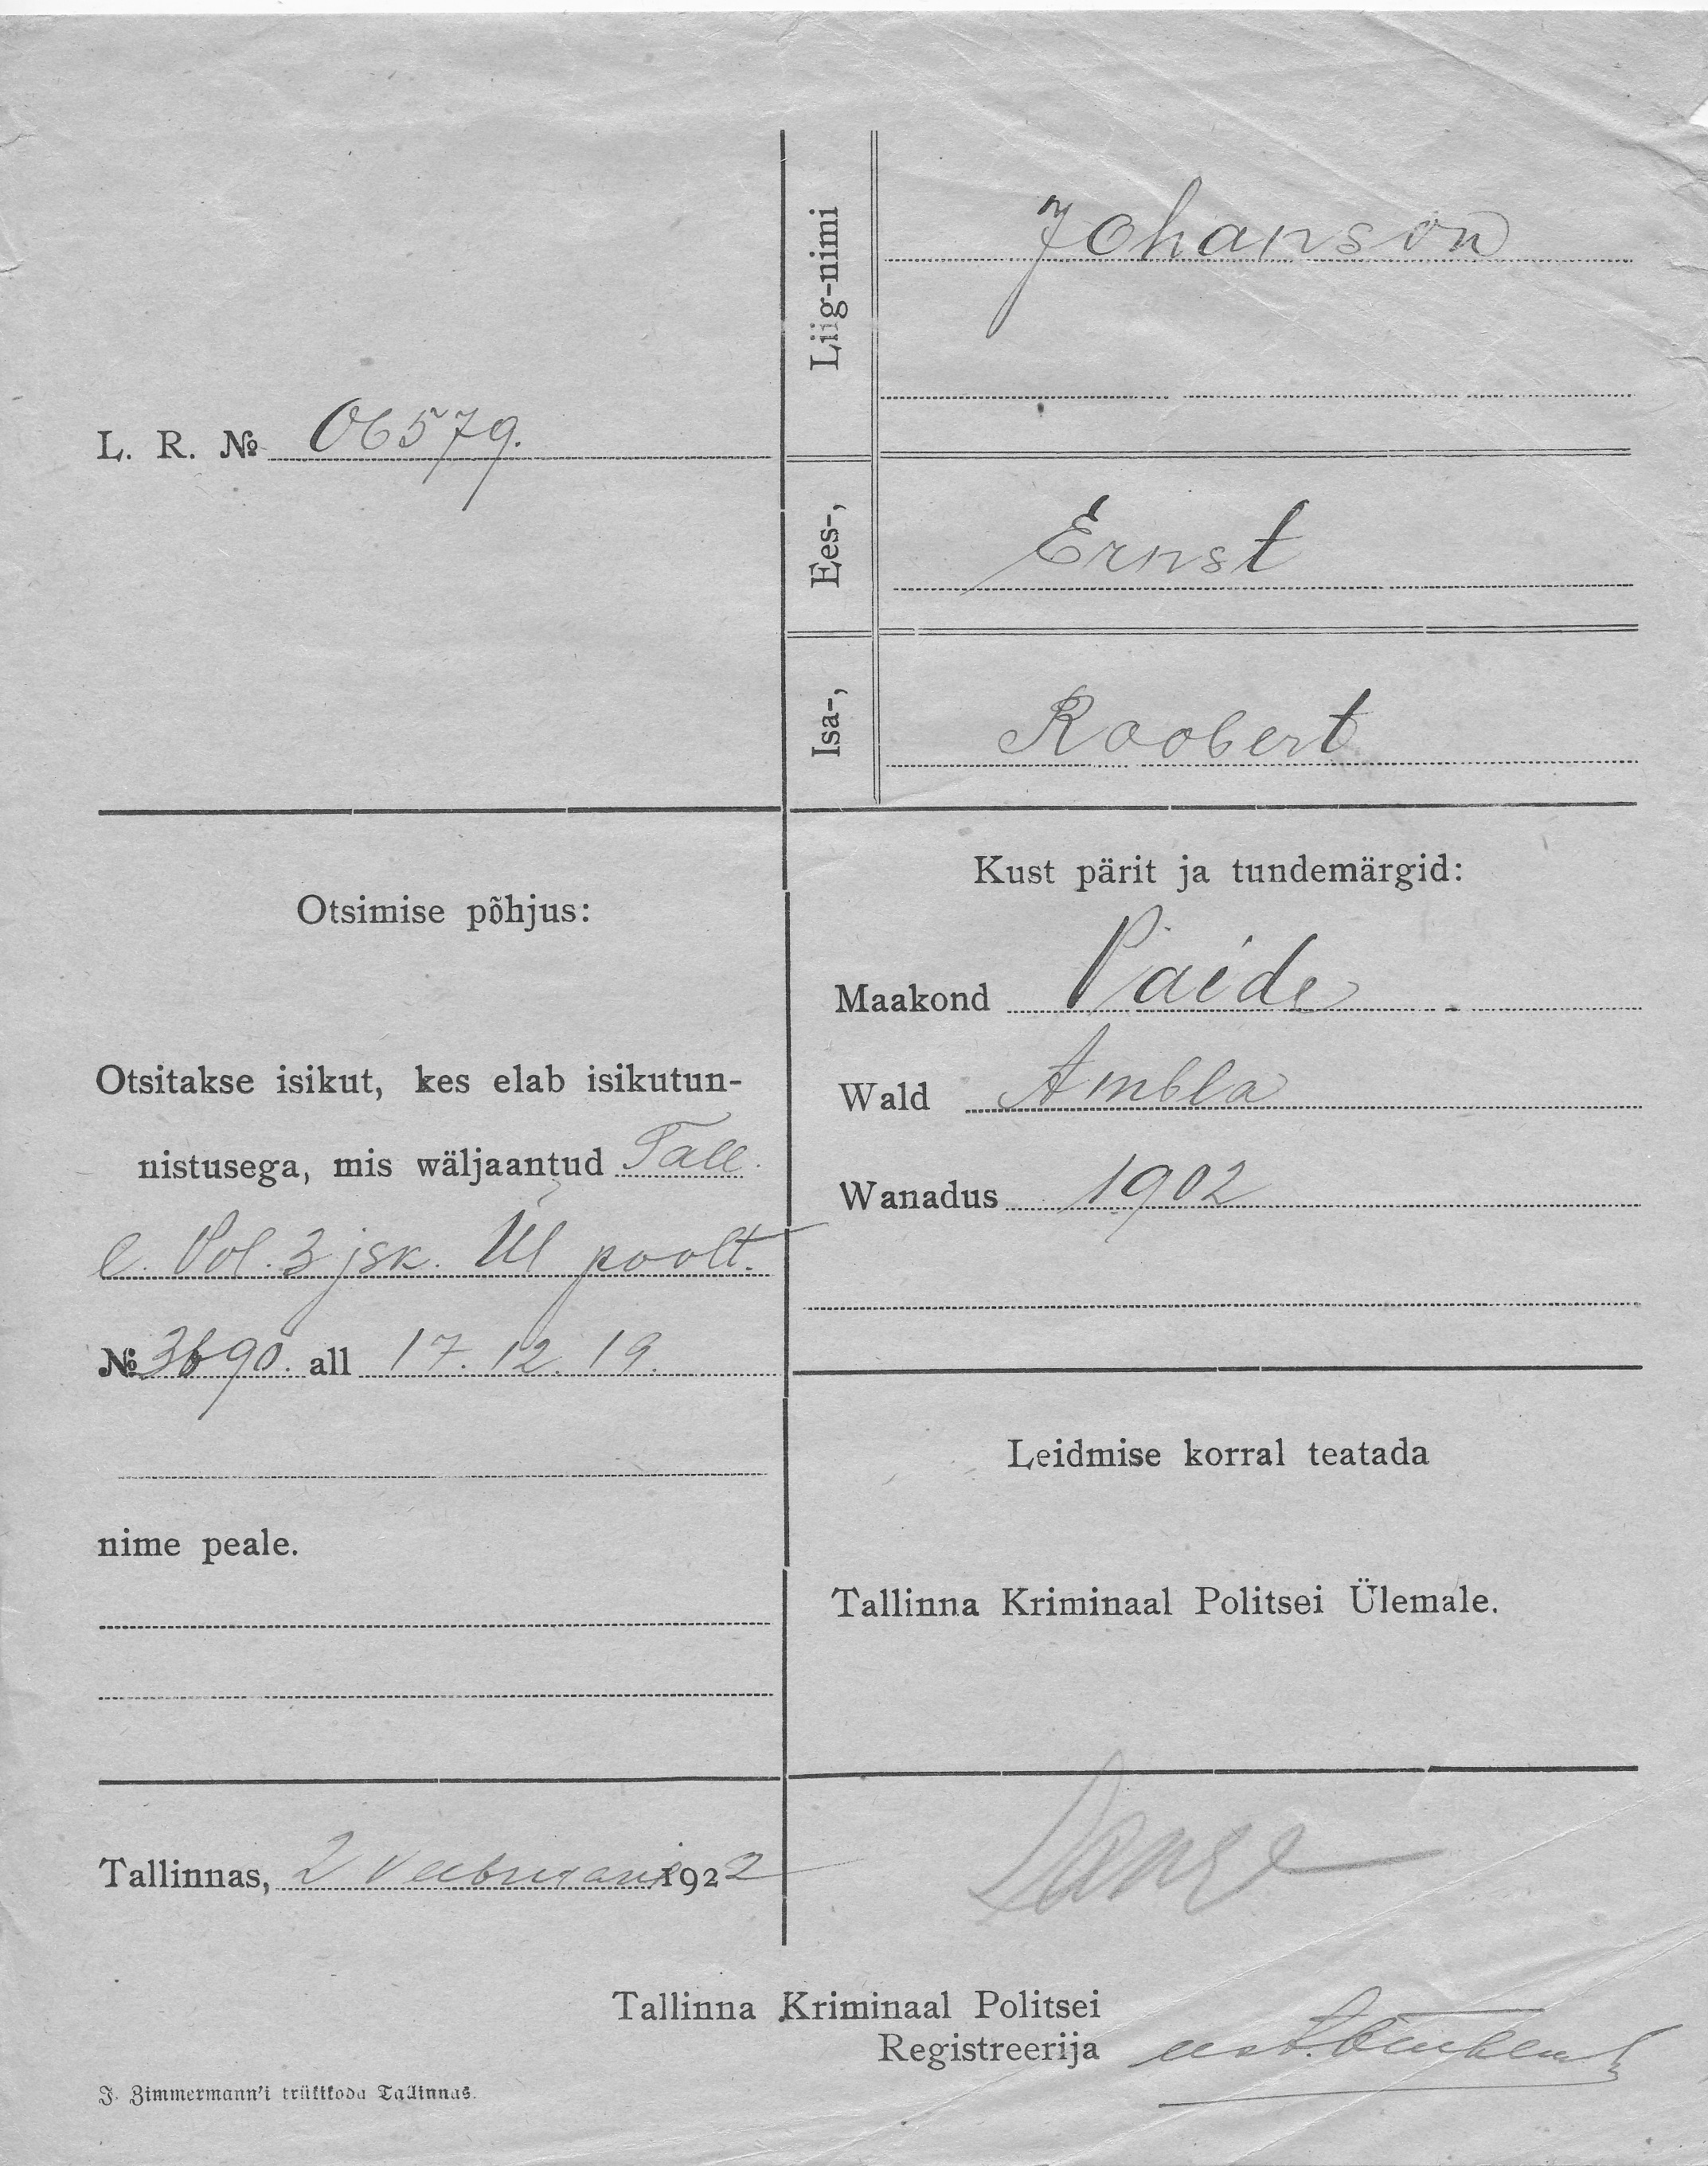 Liig-nimi
Johanson
L. R. № 06579.
Ees-,
Ernst
Isa-,
Roobert
Otsimise põhjus:
Otsitakse isikut, kes elab isikutun-
nistusega, mis wäljaantud Tall.
l. Pol. 3 jsk. Ül poolt.
№ 3690. all 17. 12. 19.
nime peale.
Kust pärit ja tundemärgid:
Maakond Paide
Wald Ambla
Wanadus 1902
Leidmise korral teatada
Tallinna Kriminaal Politsei Ülemale.
Tallinnas, 2 Veebruaril 1922
Tallinna Kriminaal Politsei
Registreerija
J. Zimmermann'i trükikoda Tallinnas.